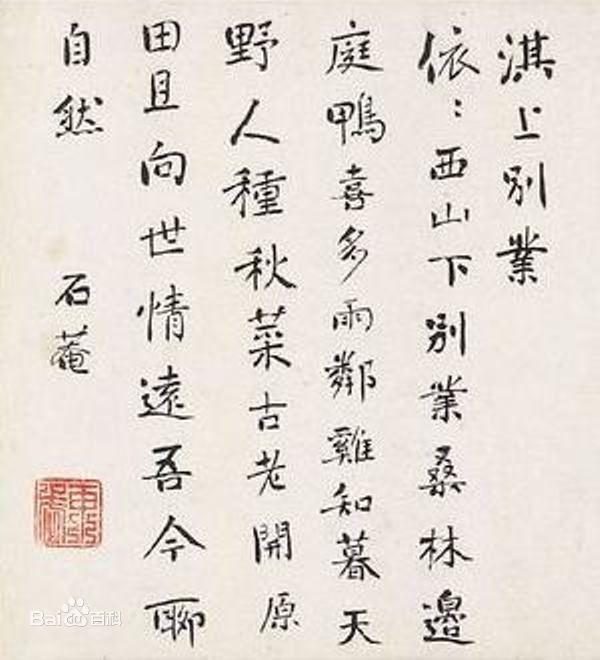 淇上別業
依：西山下別業桑林邊
庭鴨喜多雨鄰雞知暮天
野人種秋菜古老開原
田且向世情遠吾今聊
自然
石菴
Bai百科